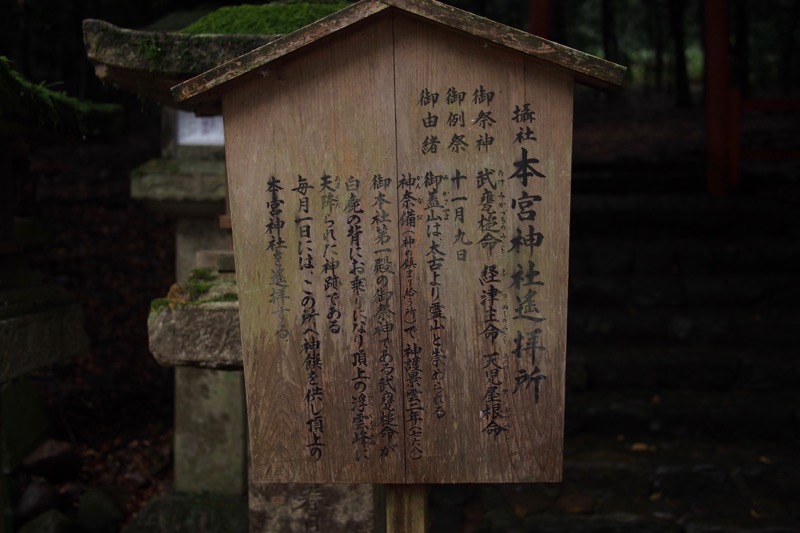 攝社 本宮神社遙拝所
御祭神 武甕槌命 経津主命 天児屋根命
御例祭 十一月九日
御由緒 御蓋山は太古より霊山と崇められる
神奈備(神の鎮まり給う所)で神護景雲二年(七六八)
御本社第一殿の御祭神である武甕槌命が
白鹿の背にお乗りになり頂上の浮雲峰に
天降られた神跡である
毎月一日には、この所へ神饌を供し頂上の
本宮神社を遙拝する